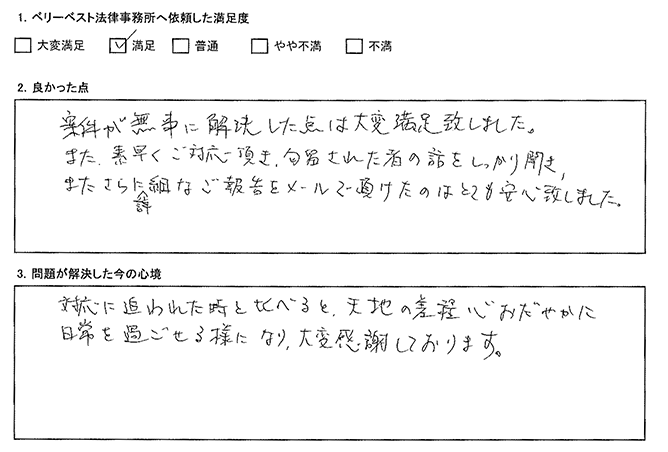 1. ベリーベスト法律事務所へ依頼した満足度
□ 大変満足 ☑ 満足 □ 普通 □ やや不満 □ 不満
2. 良かった点
案件が無事に解決した点は大変満足致しました。
また、素早くご対応頂き、勾留された者の話をしっかり聞き、
またさらに詳細なご報告をメールで頂けたのはとても安心致しました。
3. 問題が解決した今の心境
対応に追われた時と比べると、天地の差程心おだやかに
日常を過ごせる様になり、大変感謝しております。